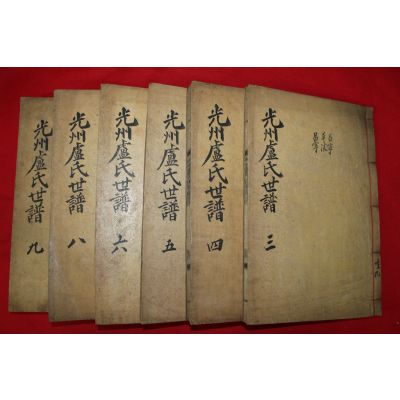 光州盧氏世譜 三
光州盧氏世譜 四
光州盧氏世譜 五
光州盧氏世譜 六
光州盧氏世譜 八
光州盧氏世譜 九